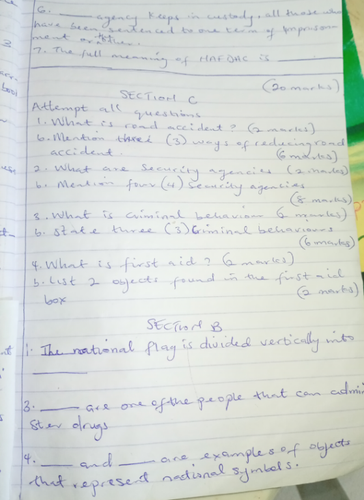 6. ______ agency keeps in custody, all those who
have been sentenced to one term of imprison-
ment or other.
7. The full meaning of NAFDAC is ______
(20 marks)
SECTION C
Attempt all questions
1. What is road accident? (2 marks)
b. Mention three (3) ways of reducing road
accident. (6 marks)
2. What are Security agencies (2 marks)
b. Mention four (4) Security agencies
(8 marks)
3. What is Criminal behaviour (2 marks)
b. State three (3) Criminal behaviours
(6 marks)
4. What is first aid? (2 marks)
b. List 2 objects found in the first aid
box (2 marks)
SECTION B
1. The national flag is divided vertically into
______
3. ______ are one of the people that can admini
ster drugs
4. ______ and ______ are examples of objects
that represent national symbols.